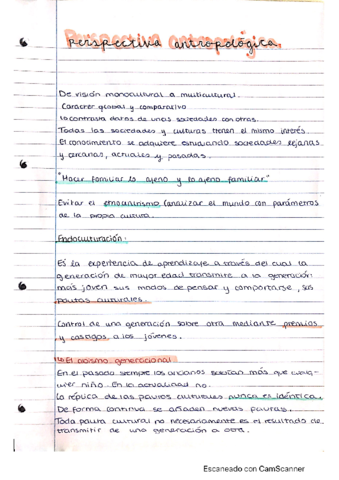 Perspectiva antropológica.
De visión monocultural a multicultural.
Caracter global y comparativo
↳ contrasta datos de unas sociedades con otras.
Todas las sociedades y culturas tienen el mismo interés.
El conocimiento se adquiere estudiando sociedades lejanas
y cercanas, actuales y pasadas.
"Hacer familiar lo ajeno y lo ajeno familiar."
Evitar el etnocentrismo (analizar el mundo con parámetros
de la propia cultura.
Endoculturación:
Es la experiencia de aprendizaje a través del cual la
generación de mayor edad transmite a la generación
más joven sus modos de pensar y comportarse, sus
pautas culturales.
Control de una generación sobre otra mediante premios
y castigos a los jóvenes.
↳ El abismo generacional
En el pasado siempre los ancianos sabían más que cualq-
uier niño. En la actualidad no.
La réplica de las pautas culturales nunca es idéntica.
De forma continua se añaden nuevas pautas.
Toda pauta cultural no necesariamente es el resultado de
transmitir de una generación a otra.
Escaneado con CamScanner